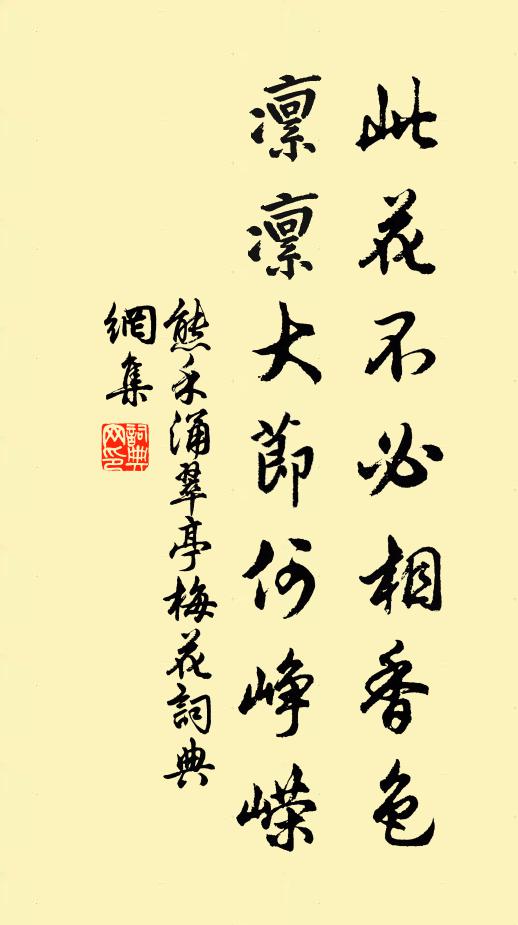 此花不必相香色
凛凛大節何峥嶸
熊禾涌翠亭梅花詞典
網集
詞典
网印